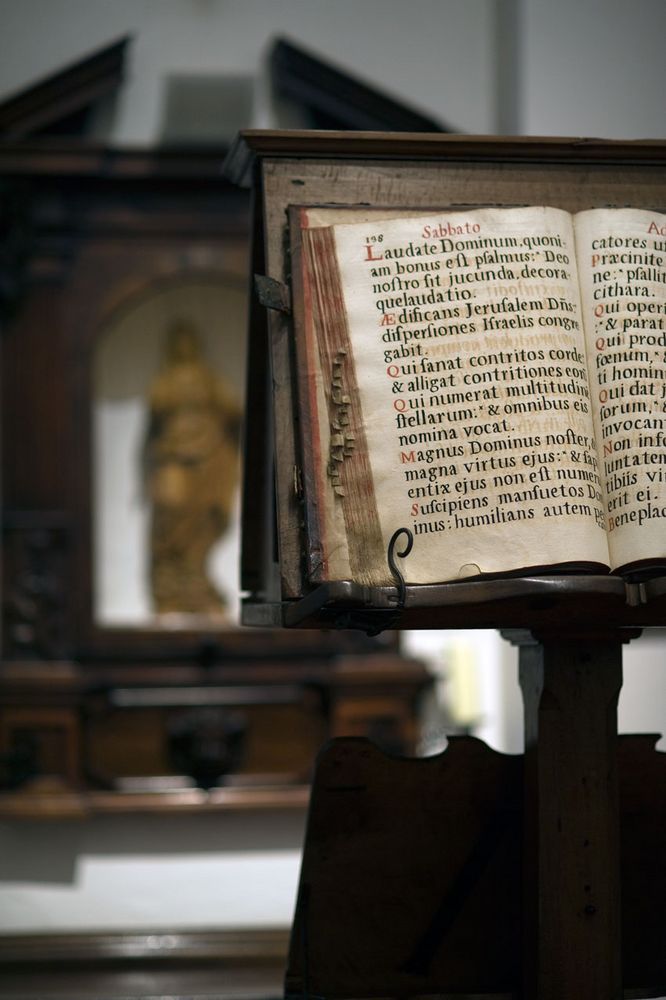 198 Sabbato
Laudate Dominum, quoni-
am bonus eſt pſalmus:* Deo
noſtro ſit jucunda, decora-
quelaudatio.
Ædificans Jeruſalem Dñs:
diſperſiones Iſraelis congre
gabit.
Qui ſanat contritos corde:
& alligat contritiones
Qui numerat multitudinẽ
ſtellarum:* & omnibus eis
nomina vocat.
Magnus Dominus noſter,
magna virtus ejus:* & ſapi
entiæ ejus non eſt numer
Suſcipiens manſuetos Do
inus: humilians autem pe
Ad
catores uſ
Præcinite
ne:* pſalli
cithara.
Qui operi
* & parat
Qui produ
fœnum, *
ti homini
Qui dat j
ſorum, *
invocan
Non info
luntatem
tibiis vi
erit ei.
Beneplac